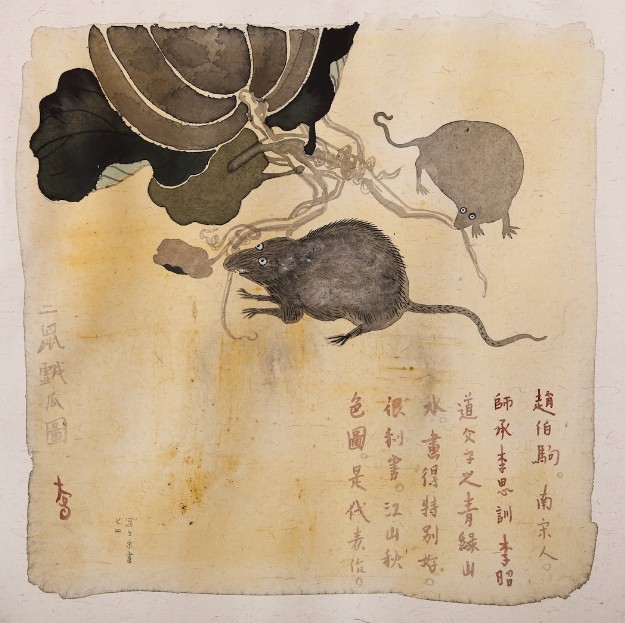 趙伯駒。南宋人。
師承李思訓李昭
道父子之青綠山
水。畫得特別好。
很利害。江山秋
色圖。是代表作。
二鼠戲瓜圖